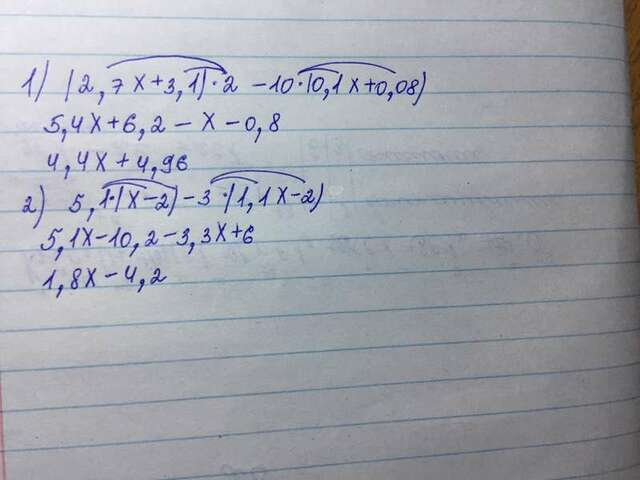 1) (2,7x+3,1)·2 -10·(0,1x+0,08)
5,4x+6,2-x-0,8
4,4x+4,96
2) 5,1·(x-2)-3·(1,1x-2)
5,1x-10,2-3,3x+6
1,8x-4,2